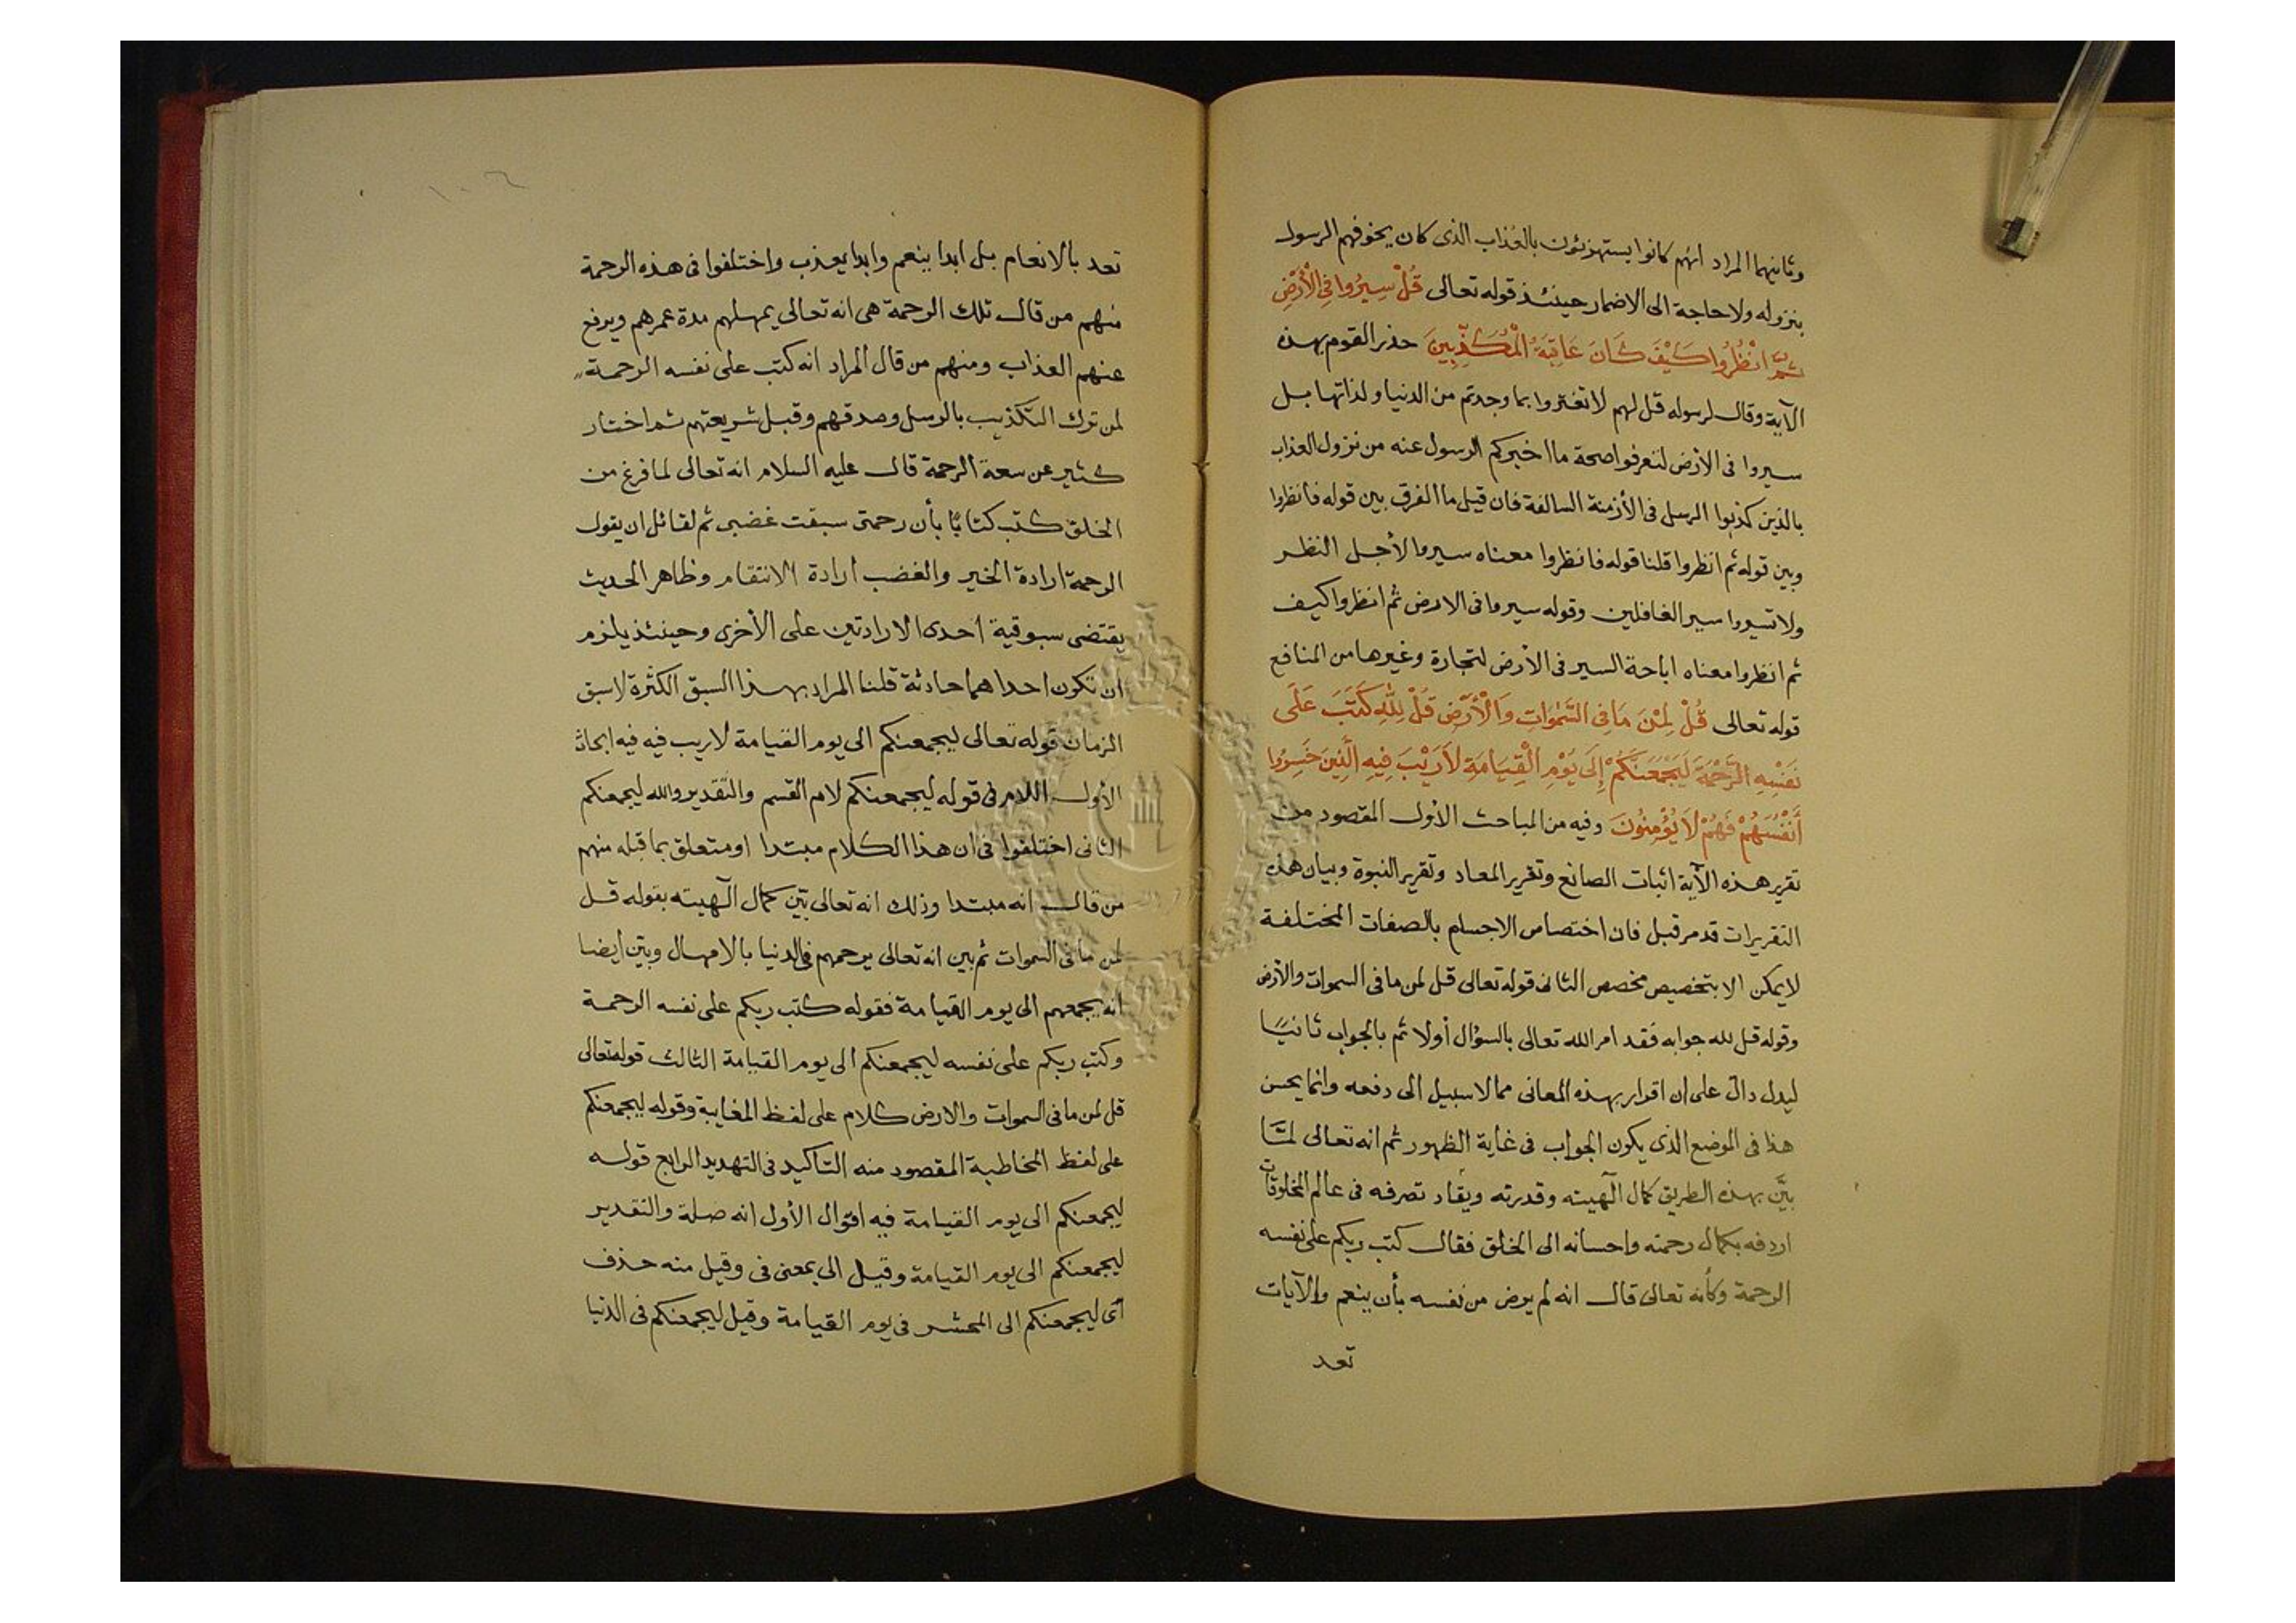 وثانيهما المراد انهم كانوا يستهزئون بالعذاب الذى كان يخوفهم الرسول
بنزوله ولا حاجة الى الاضمار حينئذ قوله تعالى قُلْ سِيرُوا فِى الْأَرْضِ
ثُمَّ انْظُرُوا كَيْفَ كَانَ عَاقِبَةُ الْمُكَذِّبِينَ حذر القوم بهذه
الآية وقال لرسوله قل لهم لا تغتروا بما وجدتم من الدنيا ولذاتها بل
سيروا فى الأرض لتعرفوا صحة ما اخبركم الرسول عنه من نزول العذاب
بالذين كذبوا الرسل فى الأزمنة السالفة فان قيل ما الفرق بين قوله فانظروا
وبين قوله ثم انظروا قلنا قوله فانظروا معناه سيروا لأجل النظر
ولا تسيروا سير الغافلين وقوله سيروا فى الارض ثم انظروا كيف
ثم انظروا معناه اباحة السير فى الأرض لتجارة وغيرها من المنافع
قوله تعالى قُلْ لِمَنْ مَا فِى السَّمٰوَاتِ وَالْأَرْضِ قُلْ لِلّٰهِ كَتَبَ عَلَى
نَفْسِهِ الرَّحْمَةَ لَيَجْمَعَنَّكُمْ إِلَى يَوْمِ الْقِيَامَةِ لاَ رَيْبَ فِيهِ الَّذِينَ خَسِرُوا
أَنْفُسَهُمْ فَهُمْ لاَ يُؤْمِنُونَ وفيه من المباحث الأول المقصود من
تقرير هذه الآية اثبات الصانع وتقرير المعاد وتقرير النبوة وبيان هذه
التقريرات قد مر قبل فان اختصاص الاجسام بالصفات المختلفة
لا يمكن الا بتخصيص مخصص الثانى قوله تعالى قل لمن ما فى السموات والأرض
وقوله قل لله جوابه فقد امر الله تعالى بالسؤال أولا ثم بالجواب ثانيًا
ليدل دال على ان اقرار بهذه المعانى مما لا سبيل الى دفعه وانما يحسن
هذا فى الموضع الذى يكون الجواب فى غاية الظهور ثم انه تعالى لمَّا
بيَّن بهذه الطريق كمال آلهيته وقدرته ونفاد تصرفه فى عالم المخلوقات
اردفه بكمال رحمته واحسانه الى الخلق فقال كتب ربكم على نفسه
الرحمة وكأنه تعالى قال انه لم يرض من نفسه بأن ينعم والآيات
تعد
١٠٦
تعد بالانعام بل ابدا ينعم وابدا يعذب واختلفوا فى هذه الرحمة
منهم من قال تلك الرحمة هى انه تعالى يمهلهم مدة عمرهم ويرفع
عنهم العذاب ومنهم من قال المراد انه كتب على نفسه الرحمة
لمن ترك التكذيب بالرسل وصدقهم وقبل شريعتهم ثم اختار
كثير عن سعة الرحمة قال عليه السلام انه تعالى لما فرغ من
الخلق كتب كتابًا بأن رحمتى سبقت غضبى ثم لقائل ان يقول
الرحمة ارادة الخير والغضب ارادة الانتقام وظاهر الحديث
يقتضى سبوقية احدى الارادتين على الأخرى وحينئذ يلزم
ان تكون احداهما حادثة قلنا المراد بهذا السبق الكثرة لا سبق
الزمان قوله تعالى ليجمعنكم الى يوم القيامة لا ريب فيه فيه ابحاث
الأول اللام فى قوله ليجمعنكم لام القسم والتقدير والله ليجمعنكم
الثانى اختلفوا فى ان هذا الكلام مبتدا او متعلق بما قبله منهم
من قال انه مبتدا وذلك انه تعالى بيّن كمال آلهيته بقوله قل
لمن ما فى السموات ثم بين انه تعالى يرحمهم فى الدنيا بالامهال وبيّن ايضا
انه يجمعهم الى يوم القيامة فقوله كتب ربكم على نفسه الرحمة
وكتب ربكم على نفسه ليجمعنكم الى يوم القيامة الثالث قوله تعالى
قل لمن ما فى السموات والارض كلام على لفظ المغايبة وقوله ليجمعنكم
على لفظ المخاطبة المقصود منه التاكيد فى التهديد الرابع قوله
ليجمعنكم الى يوم القيامة فيه اقوال الأول انه صلة والتقدير
ليجمعنكم الى يوم القيامة وقيل الى بمعنى فى وقيل منه حذف
أى ليجمعنكم الى المحشر فى يوم القيامة وقيل ليجمعنكم فى الدنيا